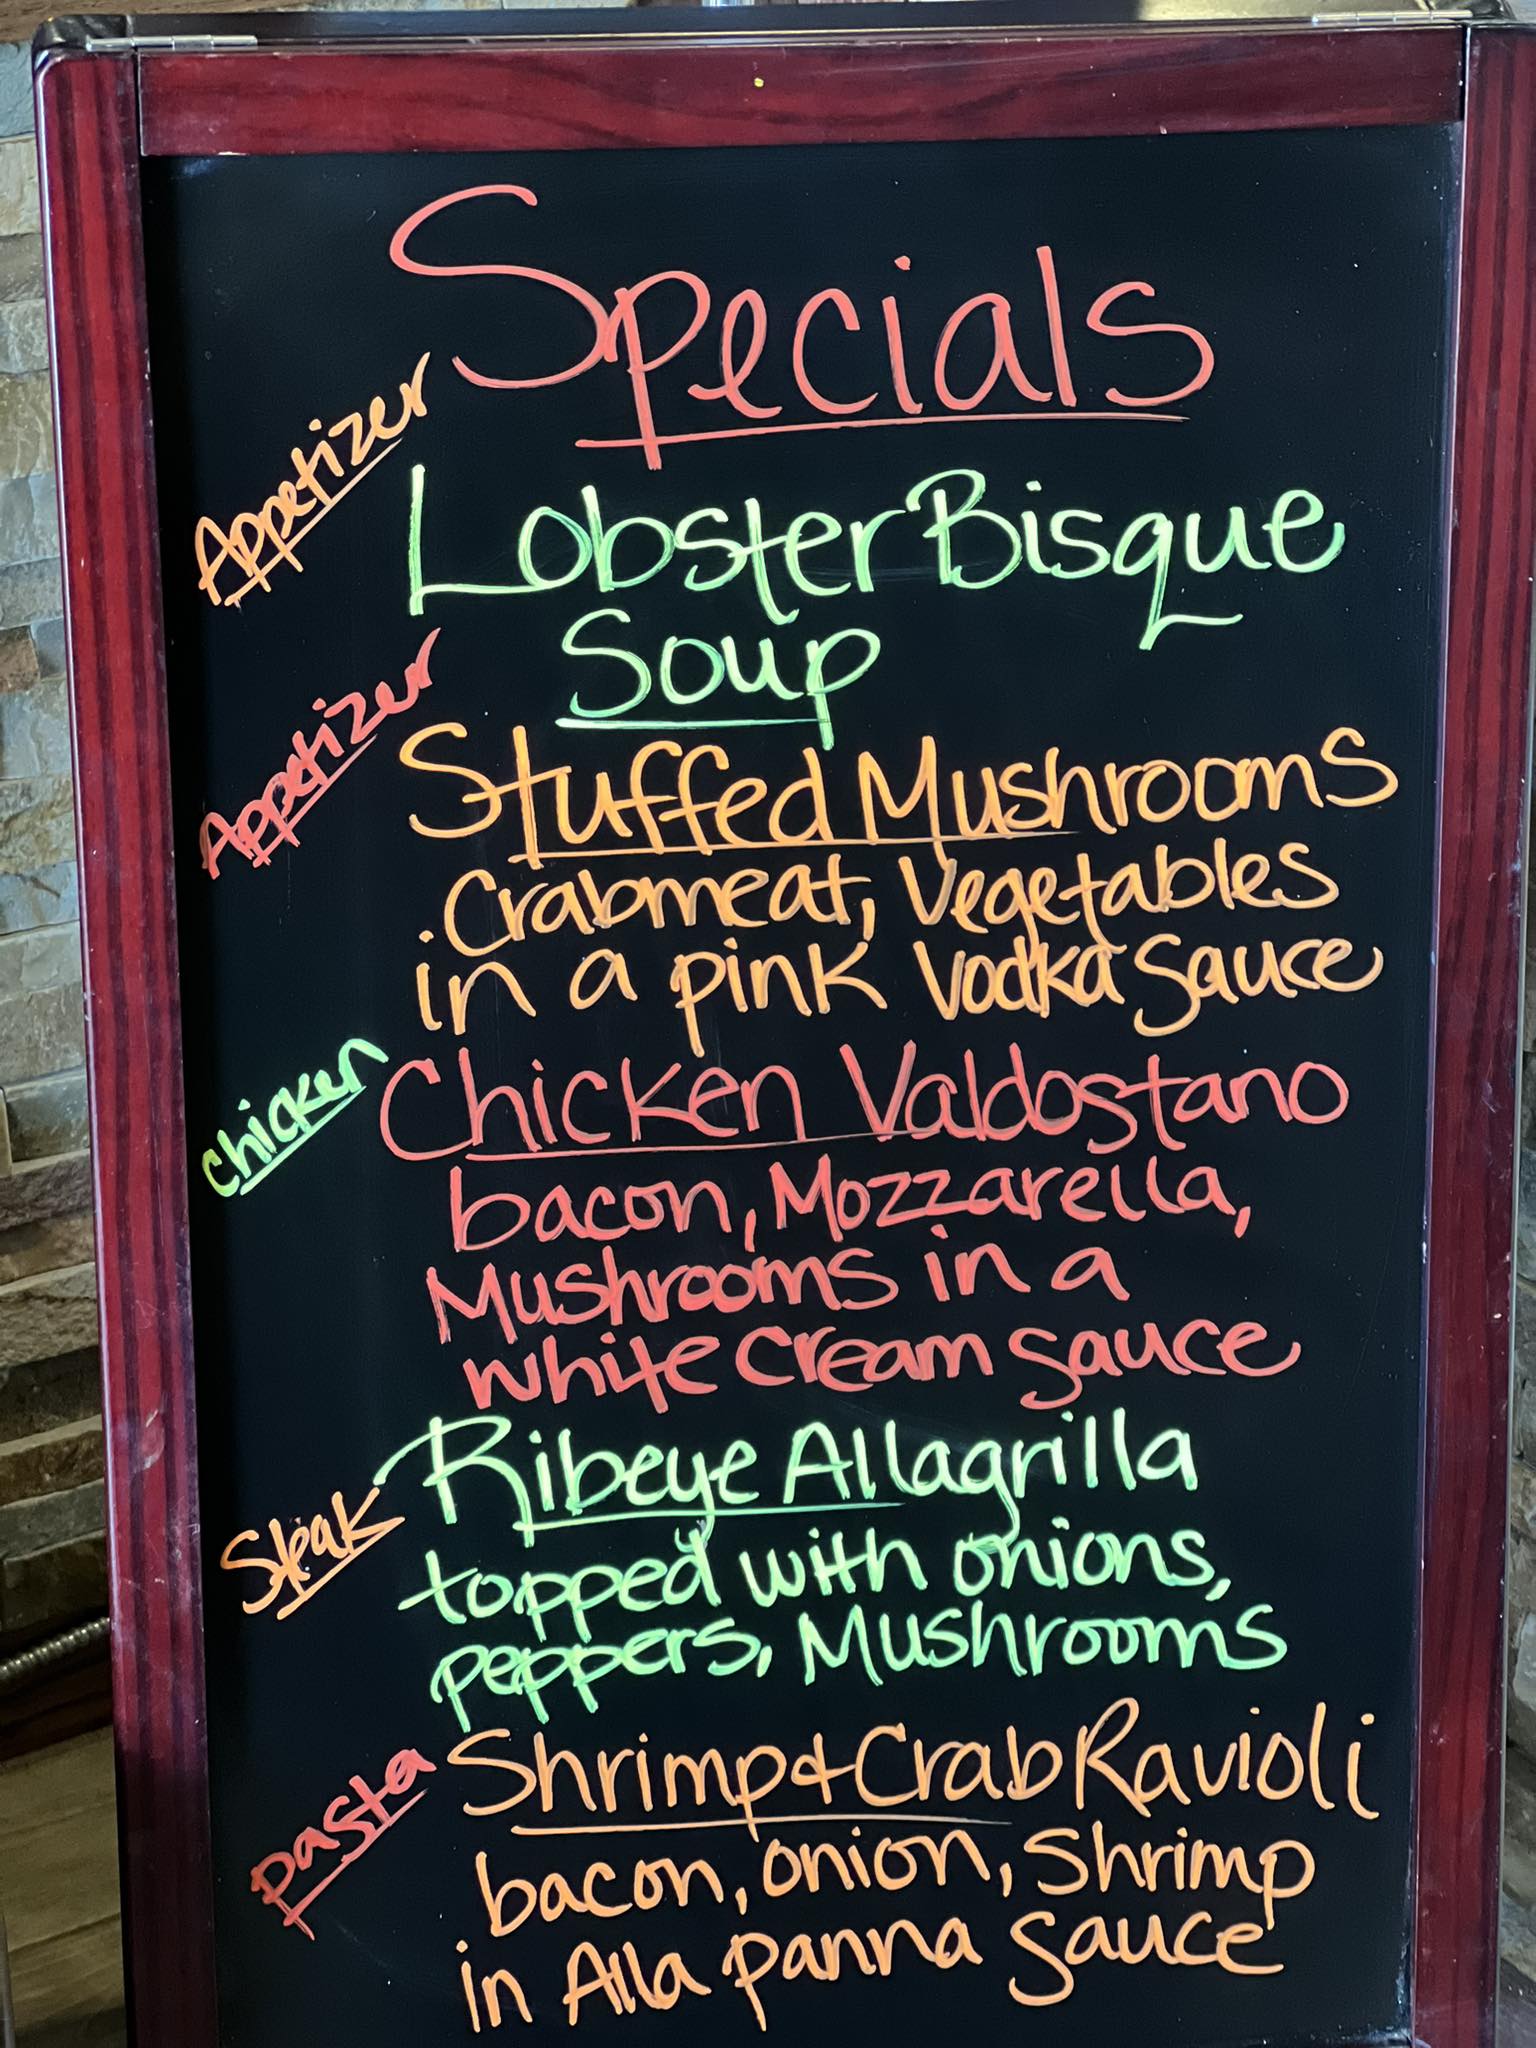 Specials
Appetizer
Lobster Bisque
Soup
Appetizer
Stuffed Mushrooms
Crabmeat, Vegetables
in a pink Vodka Sauce
Chicken
Chicken Valdostano
bacon, Mozzarella,
Mushrooms in a
white cream sauce
Steak
Ribeye Allagrilla
topped with onions,
peppers, Mushrooms
pasta
Shrimp & Crab Ravioli
bacon, onion, Shrimp
in Alla panna sauce